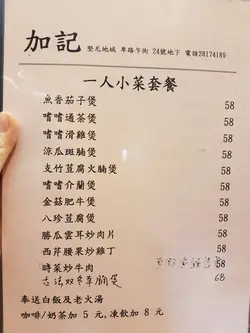 加記 堅尼地城 卑路乍街 24號地下 電話28174189
一人小菜套餐
魚香茄子煲 58
嗜嗜通菜煲 58
嗜嗜滑雞煲 58
涼瓜斑腩煲 58
支竹荳腐火腩煲 58
嗜嗜介蘭煲 58
金菇肥牛煲 58
八珍荳腐煲 58
勝瓜雲耳炒肉片 58
西芹腰果炒雞丁 58
時菜炒牛肉 58
古法双冬草腩煲 68
奉送白飯及老火湯
咖啡/奶茶加 5 元,凍飲加 8 元